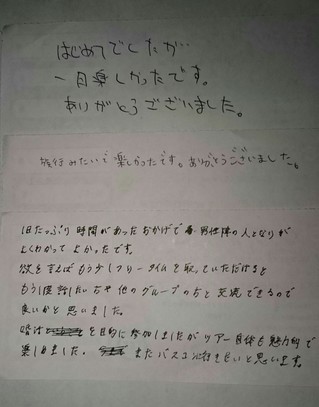 はじめてでしたが…
一日楽しかったです。
ありがとうございました。
旅行みたいで楽しかったです。ありがとうございました。
1日たっぷり時間があったおかげで男性陣の人となりが
よくわかってよかったです。
欲を言えばもう少しフリータイムを取っていただけると
もう1度話したい方や他のグループの方と交流できるので
良いかと思いました。
婚活を目的に参加しましたがツアー自体も魅力的で
楽しめました。またバスコン行きたいと思います。